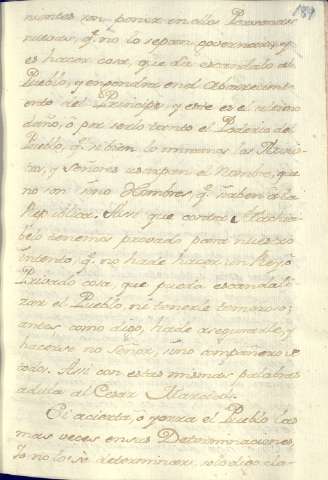 189
nientes son poner en ellos Personas
nuevas, q.e no lo sepan governar, y
es hacer cosa, que da escandalo al
Pueblo, y en pondra en el Aborrecimi
ento del Principe, y este es el ultimo
daño, ó por serlo tanto el Poderio del
Pueblo, q.e si bien lo miramos las
tas, y Señores usurpan el Nombre, que
no son sino Hombres, q.e saben á la
Republica. Asi que contra Machia
belo tenemos provado para nuestro
intento, q.e no hade hacer un Rey, ó
Privado cosa, que pueda escandali
zar el Pueblo ni tenerle temeroso;
antes como digo, hade asegurarle, y
hacerse no Señor, sino compañero de
todos. Asi con estas mismas palabras
adula al Cesar Marcial.
Si acierta, ó yerra el Pueblo las
mas veces en sus Determinaciones,
Yo no lo sé determinar, solo digo